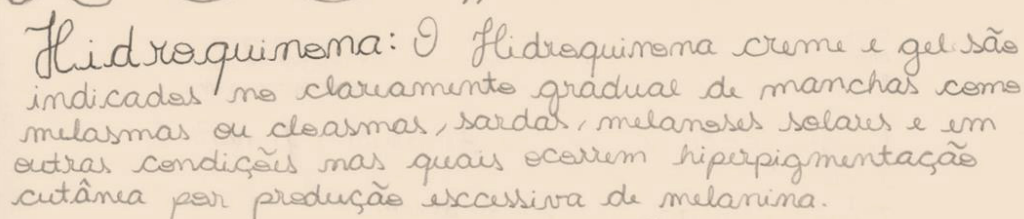 Hidroquinona: O Hidroquinona creme e gel são
indicados no clareamento gradual de manchas como
melasmas ou cloasmas, sardas, melanoses solares e em
outras condições nas quais ocorrem hiperpigmentação
cutânea por produção escessiva de melanina.